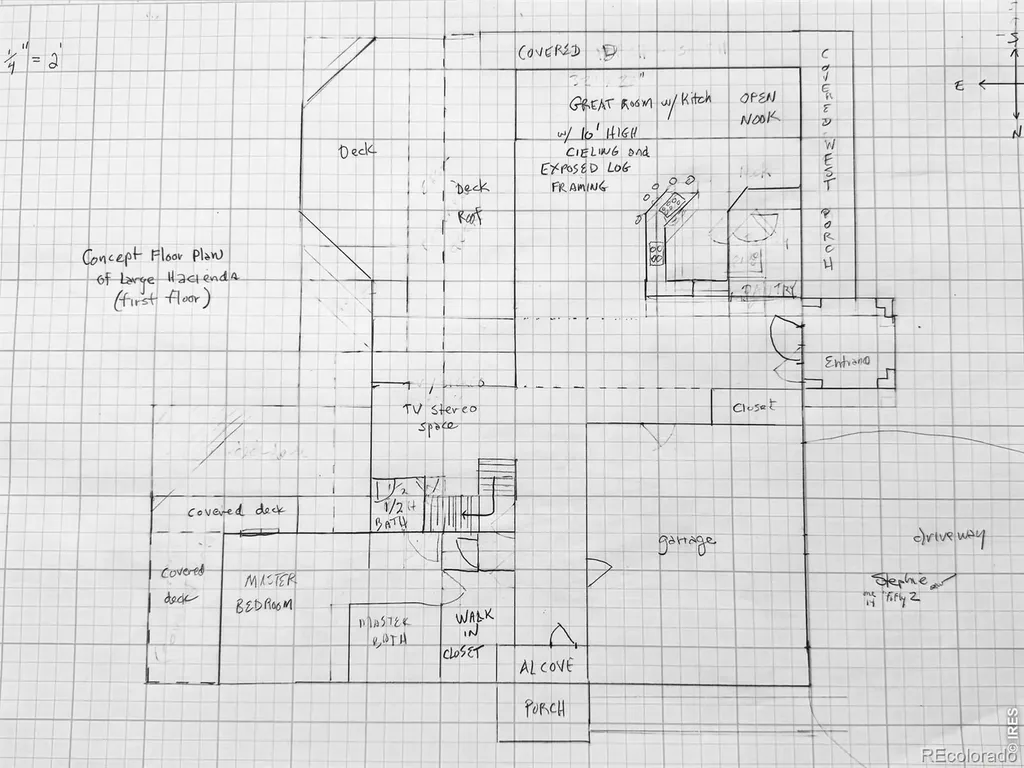 1/4" = 2'
COVERED
S
E
N
COVERED WEST PORCH
GREAT ROOM w/ Kitch
OPEN
NOOK
w/ 10' HIGH
CIELING and
EXPOSED LOG
FRAMING
Deck
Deck
Roof
Concept Floor Plan
of Large Hacienda
(first floor)
Closet
TV Stereo
space
1/2
BATH
covered deck
garage
driveway
covered
deck
MASTER
BEDROOM
MASTER
BATH
WALK
IN
CLOSET
ALCOVE
PORCH
© IRES
REcolorado